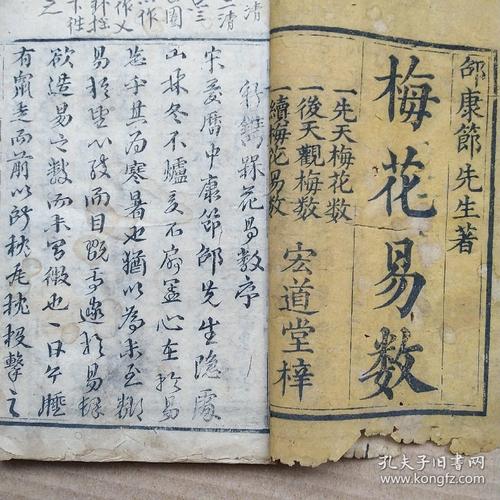 邵康節先生著
梅花易數
一先天梅花數
一後天觀梅數
一續梅花易數
宏道堂梓
新鐫槑花易數序
宋慶曆中康節邵先生隱處
山林冬不爐夏不扇蓋心在於易
忘乎其為寒暑也猶以為未至糊
易於壁心致而目玩焉邃於易理
欲造易之數而未有徵也一日午睡
有鼠走而前以所枕瓦枕投擊之
孔夫子旧书网
www.kongfz.com